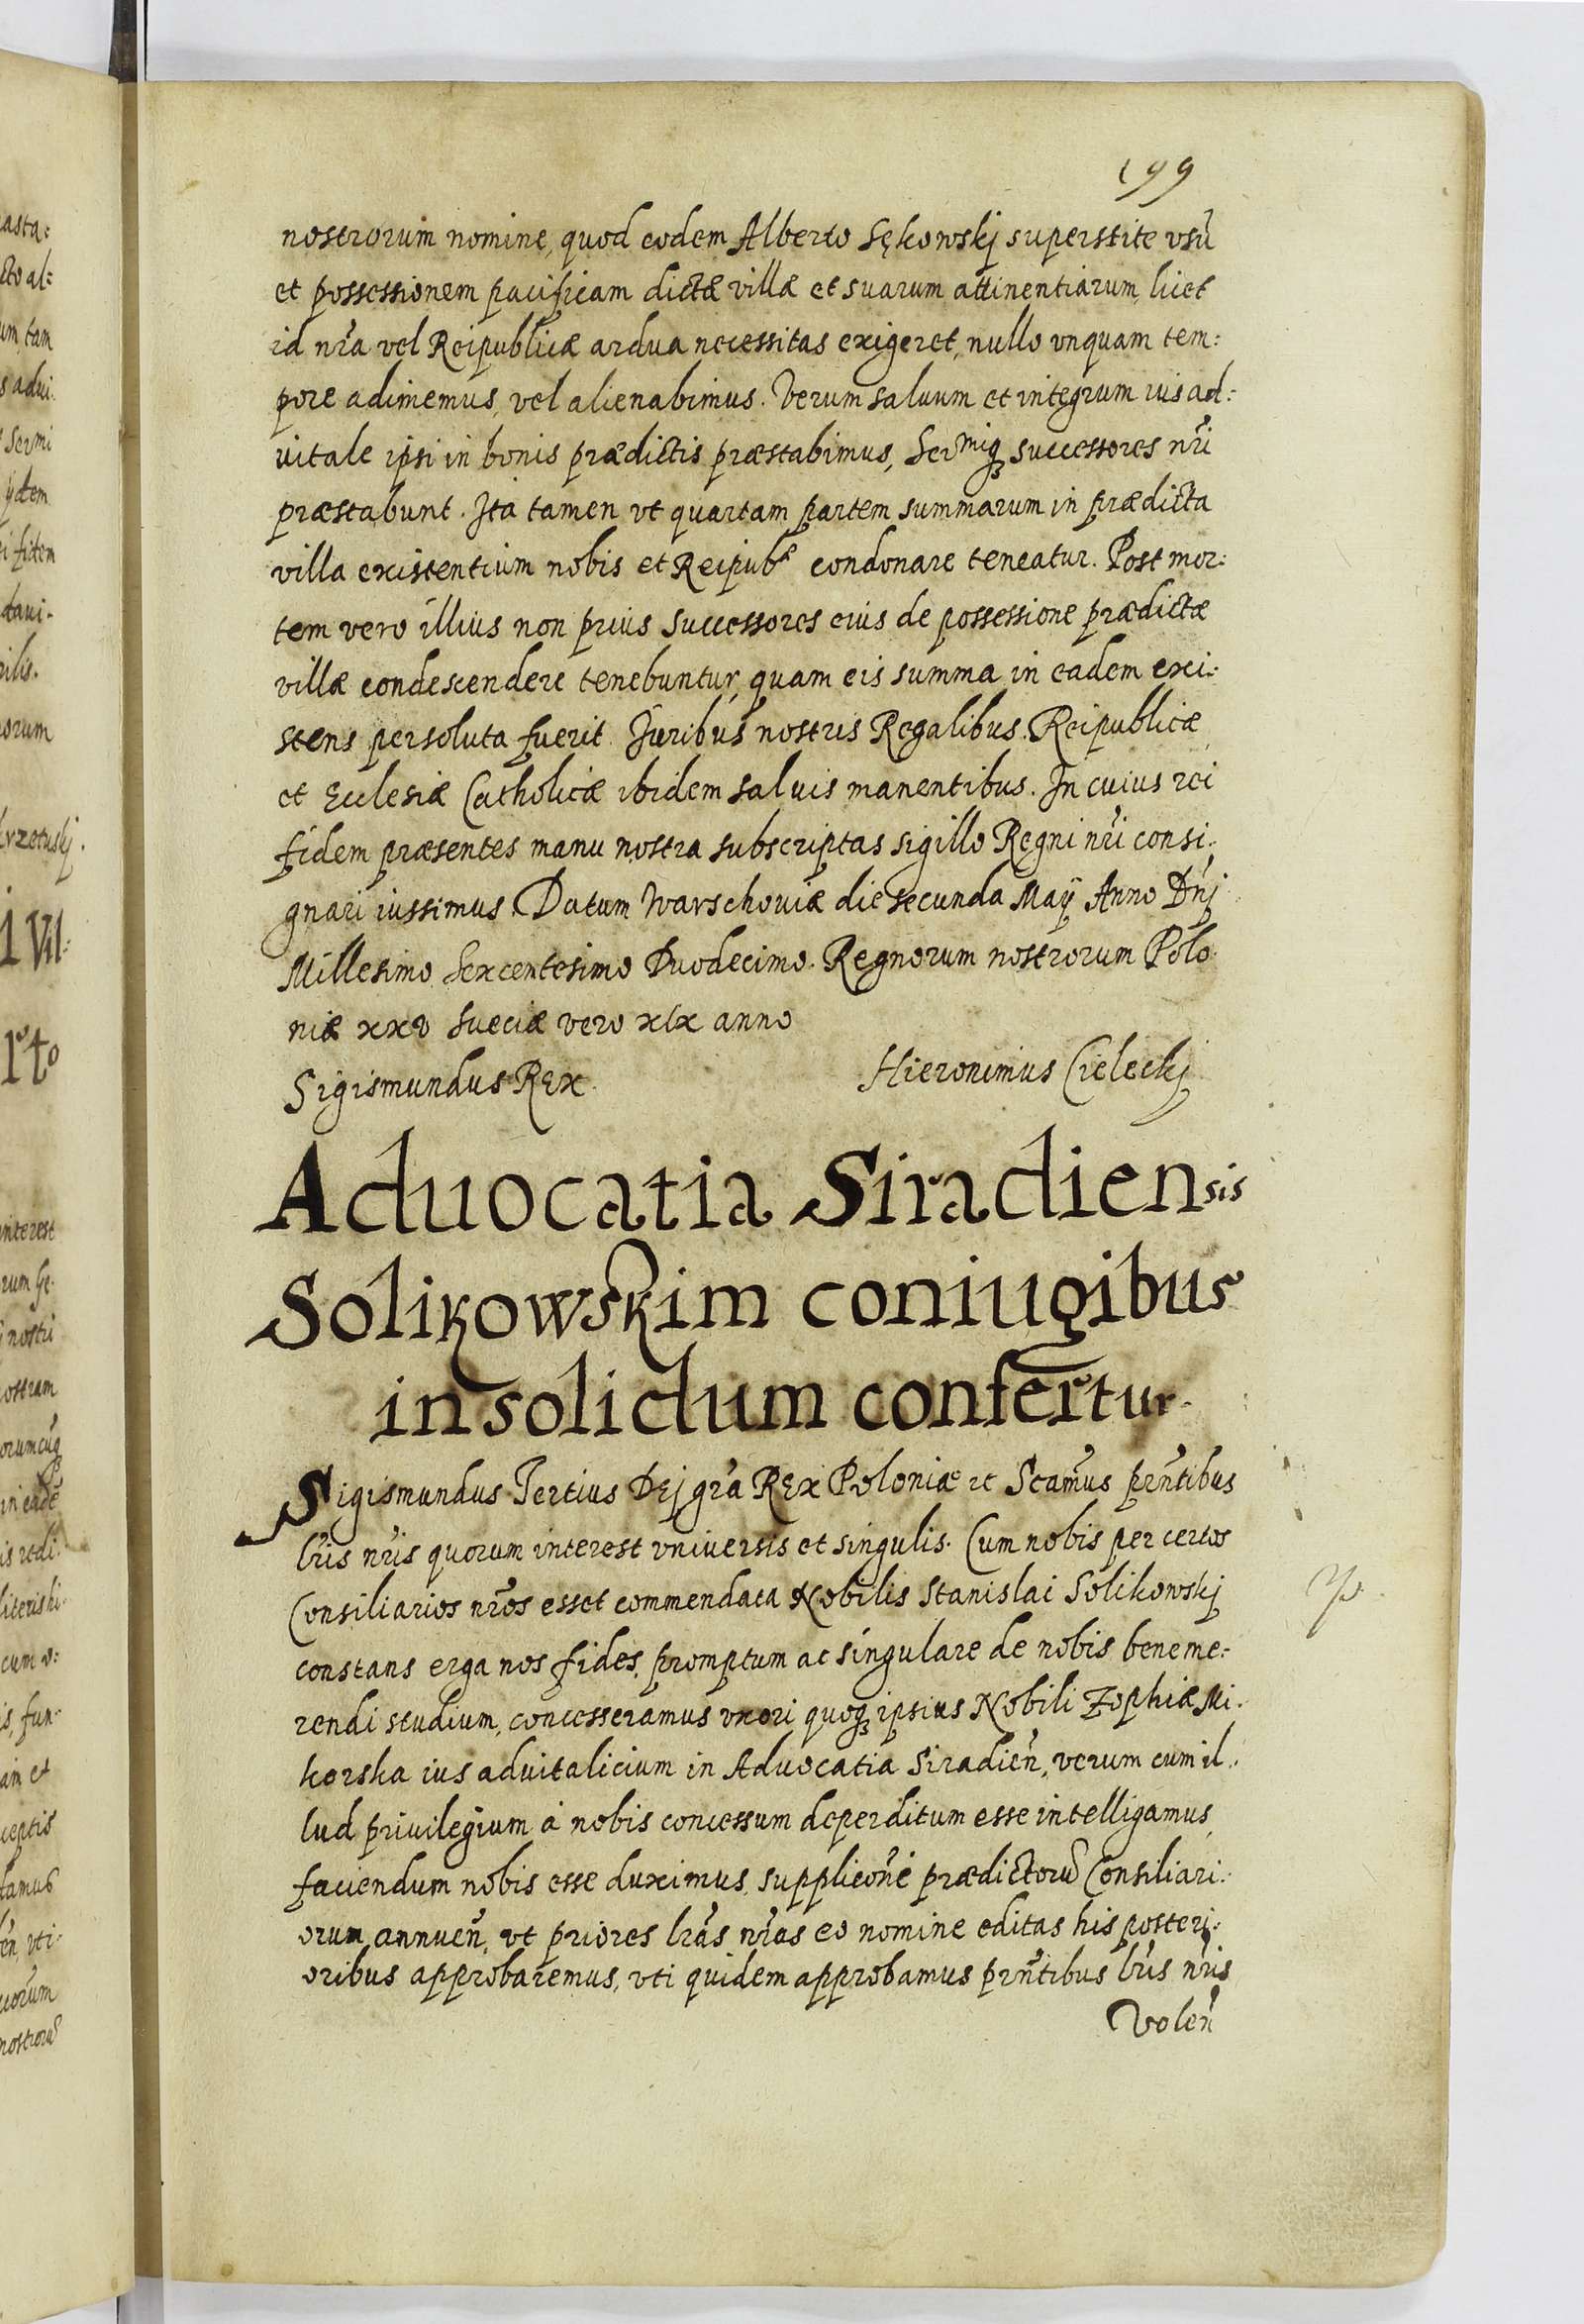 199
nostrorum nomine, quod eodem Alberto Sękowskj superstite vsũ
et possessionem pacificam dictæ villæ et suarum attinentiarum, licet
id nr̃a vel Reipublicæ ardua necessitas exigeret, nullo vnquam tem:
pore adimemus, vel alienabimus. Verum saluum et integrum ius ad:
uitale ipsi in bonis prædictis præstabimus, Sermiq₃ successores nr̃i
præstabunt. Ita tamen vt quartam partem summarum in prædicta
villa existentium nobis et Reipubæ condonare teneatur. Post mor:
tem vero illius non prius successores eius de possessione prædictæ
villæ condescendere tenebuntur, quam eis summa in eadem exi:
stens persoluta fuerit. Juribus nostris Regalibus. Reipublicæ,
et Ecclesiæ Catholicæ ibidem saluis manentibus. In cuius rei
fidem præsentes manu nostra subscriptas sigillo Regni nr̃i consi:
gnari iussimus. Datum Warschouiæ die secunda Maÿ Anno Dn̄j
Millesimo Sexcentesimo Duodecimo. Regnorum nostrorum Polo:
niæ xxv Sueciæ vero xix anno
Sigismundus Rex. Hieronimus Cieleckj
Aduocatia Siradiensis
Solikowskim coniugibus
in solidum confertur.
Sigismundus Tertius Dej gr̃a Rex Poloniæ etc Scamus̃ prñtibus
lr̃is nr̃is quorum interest vniuersis et singulis. Cum nobis per certos
Consiliarios nr̃os esset commendata Nobilis Stanislai Solikowskj
constans erga nos fides, promptum ac singulare de nobis beneme:
rendi studium, concesseramus vxori quoq₃ ipsius Nobili Zophiæ Mi:
korska ius aduitalicium in Aduocatia Siradieñ, verum cum il:
lud priuilegium à nobis concessum deperditum esse intelligamus,
faciendum nobis esse duximus, supplicoñe prædictorũ Consiliari:
orum annueñ, vt priores lr̃as nr̃as eo nomine editas his posteri:
oribus approbaremus, vti quidem approbamus prñtibus lr̃is nr̃is
Voleñ